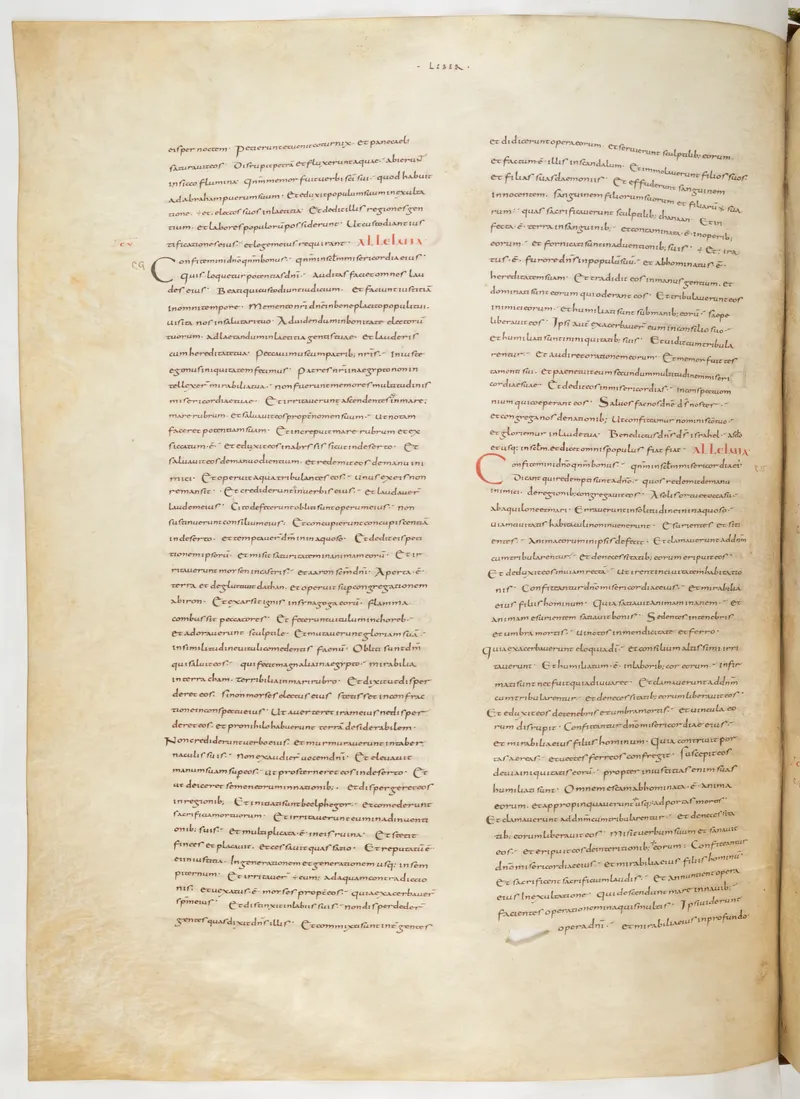 · LIBER ·
eis per noctem · Petierunt et uenit coturnix · et pane caeli
saturauit eos · Disrupit petrā et fluxerunt aquae · abierunt
in sicco flumina · Qm̄ memor fuit uerbi sc̄i sui · quod habuit
ad abraham puerum suum · Et eduxit populum suum in exulta
tione · et electos suos in laetitia · Et dedit illis regiones gen
tium · et labores populorū possiderunt · Ut custodiant ius
tificationes eius · et legem eius requirant · ALLELUIA
Confitemini dn̄o qm̄ bonus · qm̄ in sc̄lm misericordia eius
Quis loquetur potentias dn̄i · Auditas faciet omnes lau
des eius · Beati qui custodiunt iudicium · et faciunt iustitiā
in omni tempore · Memento nr̄i dn̄e in beneplacito populi tui ·
uisita nos in salutari tuo · Ad uidendum in bonitate electorū
tuorum · ad laetandum in laetitia gentis tuae · et lauderis
cum hereditate tua · Peccauimus cum patrib; nr̄is · Iniuste
egimus iniquitatem fecimus · Patres nr̄i in aegypto non in
tellexer̄ mirabilia tua · non fuerunt memores multitudinis
misericordiae tuae · Et irritauerunt ascendentes in mare;
mare rubrum · et saluauit eos propt̄ nomen suum · ut notam
faceret potentiam suam · Et increpuit mare rubrum et ex
siccatum ē · et eduxit eos in abyssis sicut in deserto · Et
saluauit eos de manu odientium · et redemit eos de manu ini
mici · Et operuit aqua tribulantes eos · unus ex eis non
remansit · Et crediderunt in uerbis eius · et laudauer̄
laudem eius · Cito fecerunt obliti sunt operum eius · non
sustinuerunt consilium eius · Et concupierunt concupiscentiā
in deserto · et temptauer̄ dm̄ in inaquoso · Et dedit eis peti
tionem ipsorū · et misit saturitatem in animam eorū · Et ir
ritauerunt moysen in castris · et aaron sc̄m dn̄i · Aperta ē ·
terra et degluttiuit dathan · et operuit sup congregationem
abiron · Et exarsit ignis in synagoga eorū · flamma
combussit peccatores · Et fecerunt uitulum in choreb ·
et adorauerunt sculptile · Et mutauerunt gloriam suā ·
in similitudine uituli comedentis faenū · Obliti sunt dm̄
qui saluit eos · qui fecit magnalia in aegypto · mirabilia
in terra cham · terribilia in mari rubro · Et dixit ut disper
deret eos · si non moyses electus eius stetisset in confrac
tione in conspectu eius · Ut auerteret iram eius ne disper
deret eos · et pro nihilo habuerunt terrā desiderabilem ·
Non crediderunt uerbo eius · et murmurauerunt in taber
naculis suis · non exaudier̄ uocem dn̄i · Et eleuauit
manum suam sup eos · ut prosterneret eos in deserto · Et
ut deiceret semen eorum in nationib; · et dispergeret eos
in regionib; · Et initiati sunt beelphegor · et comederunt
sacrificia mortuorum · Et irritauerunt eum in adinuenti
onib; suis · et multiplicata ē · in eis ruina · Et stetit
finees et placauit · et cessauit quassatio · Et reputatū ē ·
ei in iustitia · In generationem et generationem usq; in sem
piternum · Et irritauer̄ eum · ad aquam contradictio
nis · et uexatus ē · moyses propt̄ eos · quia exacerbauer̄
sp̄m eius · Et distinxit in labiis suis · non disperdider̄
gentes quas dixit dn̄s illis · Et commixti sunt int̄ gentes
et didicerunt opera eorum · et seruierunt sculptilib; eorum ·
et factum ē · illis in scandalum · Et immolauerunt filios suos ·
et filias suas daemoniis · Et effuderunt sanguinem
innocentem · sanguinem filiorum suorum et filiarū sua
rum · quas sacrificauerunt sculptilib; chanaan · Et in
fecta ē · terra in sanguinib; · et contaminata ē · in operib;
eorum · et fornicati sunt in adinuentionib; suis · Et ira
tus ē · furore dn̄s in populū suū · et abhominatus ē ·
hereditatem suam · Et tradidit eos in manus gentium · et
dominati sunt eorum qui oderant eos · Et tribulauerunt eos
inimici eorum · et humiliati sunt sub manib; eorū · saepe
liberauit eos · Ipsi aut̄ exacerbauer̄ eum in consilio suo ·
et humiliati sunt in iniquitatib; suis · Et uidit cum tribula
rentur · et audiret orationem eorum · Et memor fuit tes
tamenti sui · et paenituit eum secundum multitudinem miseri
cordiae suae · Et dedit eos in misericordias · in conspectu om
nium qui ceperant eos · Saluos fac nos dn̄e ds̄ noster ·
et congrega nos de nationib; Ut confiteamur nomini sc̄o tuo ·
et gloriemur in laude tua · Benedictus dn̄s ds̄ israhel · a sc̄lo
et usq; in sc̄lm · et dicet omnis populus fiat fiat · ALLELUIA
Confitemini dn̄o qm̄ bonus · qm̄ in sc̄lm misericordia eius
Dicant qui redempti sunt a dn̄o · quos redemit de manu
inimici · de regionib; congregauit eos · A solis ortu et occasu ·
ab aquilone et mari · Errauerunt in solitudine in inaquoso ·
uiam ciuitatis habitaculi non inuenerunt · Esurientes et siti
entes · Anima eorum in ipsis defecit · Et clamauerunt ad dn̄m
cum tribularentur · et de necessitatib; eorum eripuit eos ·
Et deduxit eos in uiam rectā · ut irent in ciuitatem habitatio
nis · Confiteantur dn̄o misericordiae eius · et mirabilia
eius filiis hominum · Quia satiauit animam inanem · et
animam esurientem satiauit bonis · Sedentes in tenebris
et umbra mortis · uinctos in mendicitate et ferro ·
Quia exacerbauerunt eloquia dī · et consilium altissimi irri
tauerunt · Et humiliatum ē · in laborib; cor eorum · infir
mati sunt nec fuit qui adiuuaret · Et clamauerunt ad dn̄m
cum tribularentur · et de necessitatib; eorum liberauit eos ·
Et eduxit eos de tenebris et umbra mortis · et uincula eo
rum disrupit · Confiteantur dn̄o misericordiae eius ·
et mirabilia eius filiis hominum · Quia contriuit por
tas aereas · et uectes ferreos confregit · Suscepit eos
de uia iniquitatis eorū · propter iniustitias enim suas
humiliati sunt · Omnem escam abhominata ē · anima
eorum · et appropinquauerunt usq; ad portas mortis ·
Et clamauerunt ad dn̄m cum tribularentur · et de necessita
tib; eorum liberauit eos · Misit uerbum suum et sanauit
eos · et eripuit eos de interitionib; eorum · Confiteantur
dn̄o misericordiae eius · et mirabilia eius filiis hominū ·
Et sacrificent sacrificium laudis · et annuntient opera
eius in exultatione · Qui descendunt mare in nauib; ·
facientes operationem in aquis multis · Ipsi uiderunt
opera dn̄i · et mirabilia eius in profundo